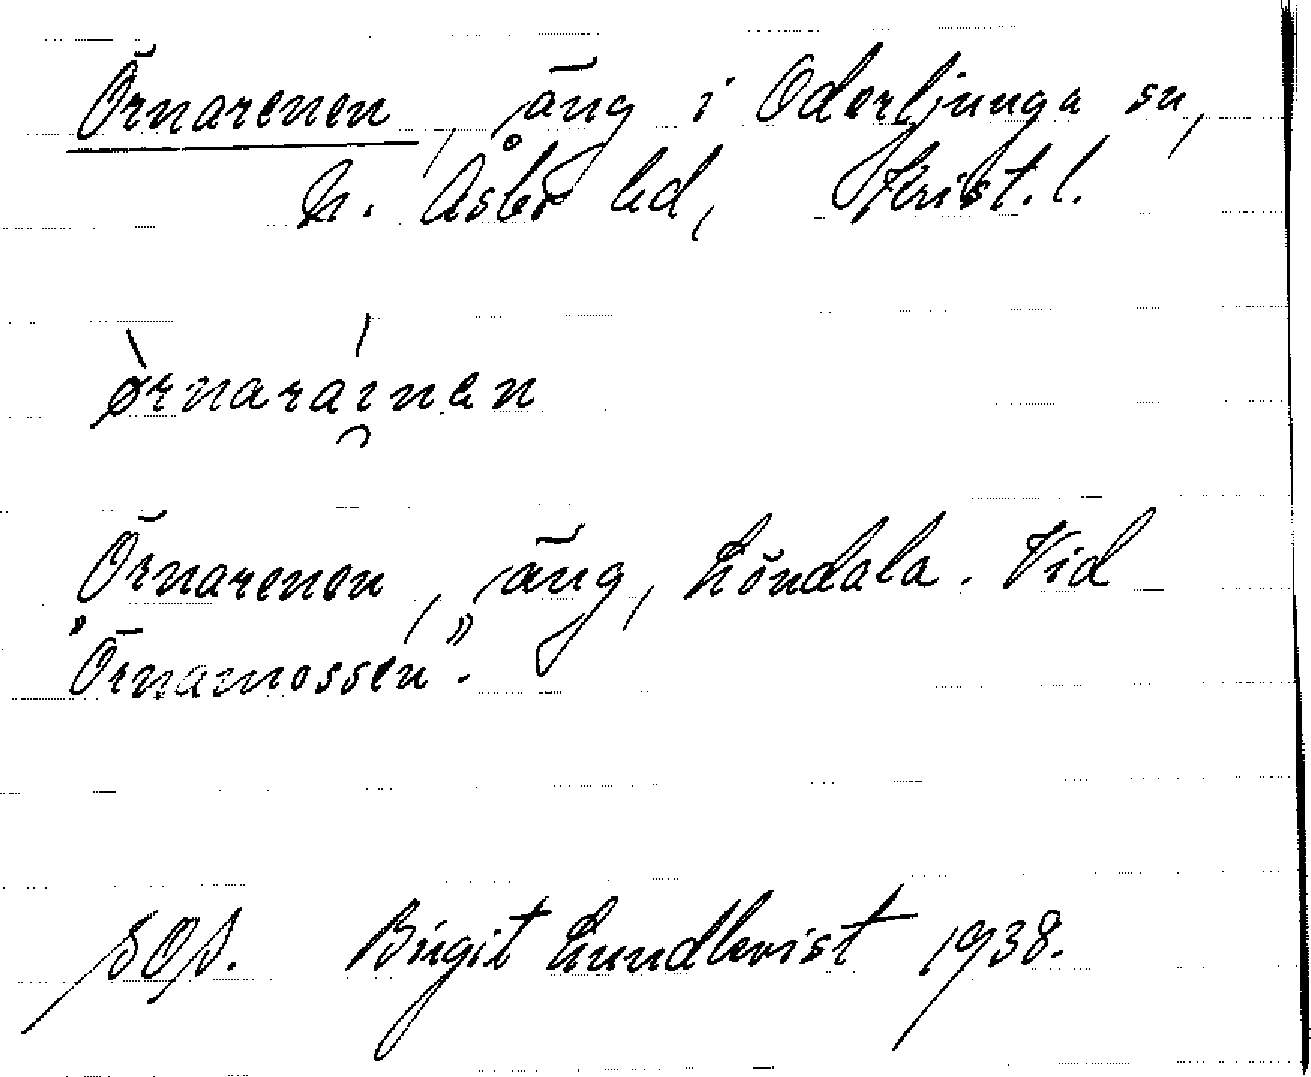 Örnarenen, äng i Oderljunga sn,
N. Åsbo hd, Krist. l.
ørnaráinen
Örnarenen, äng, Löndala. Vid
"Örnamossen".
SOS. Birgit Lundkvist 1938.